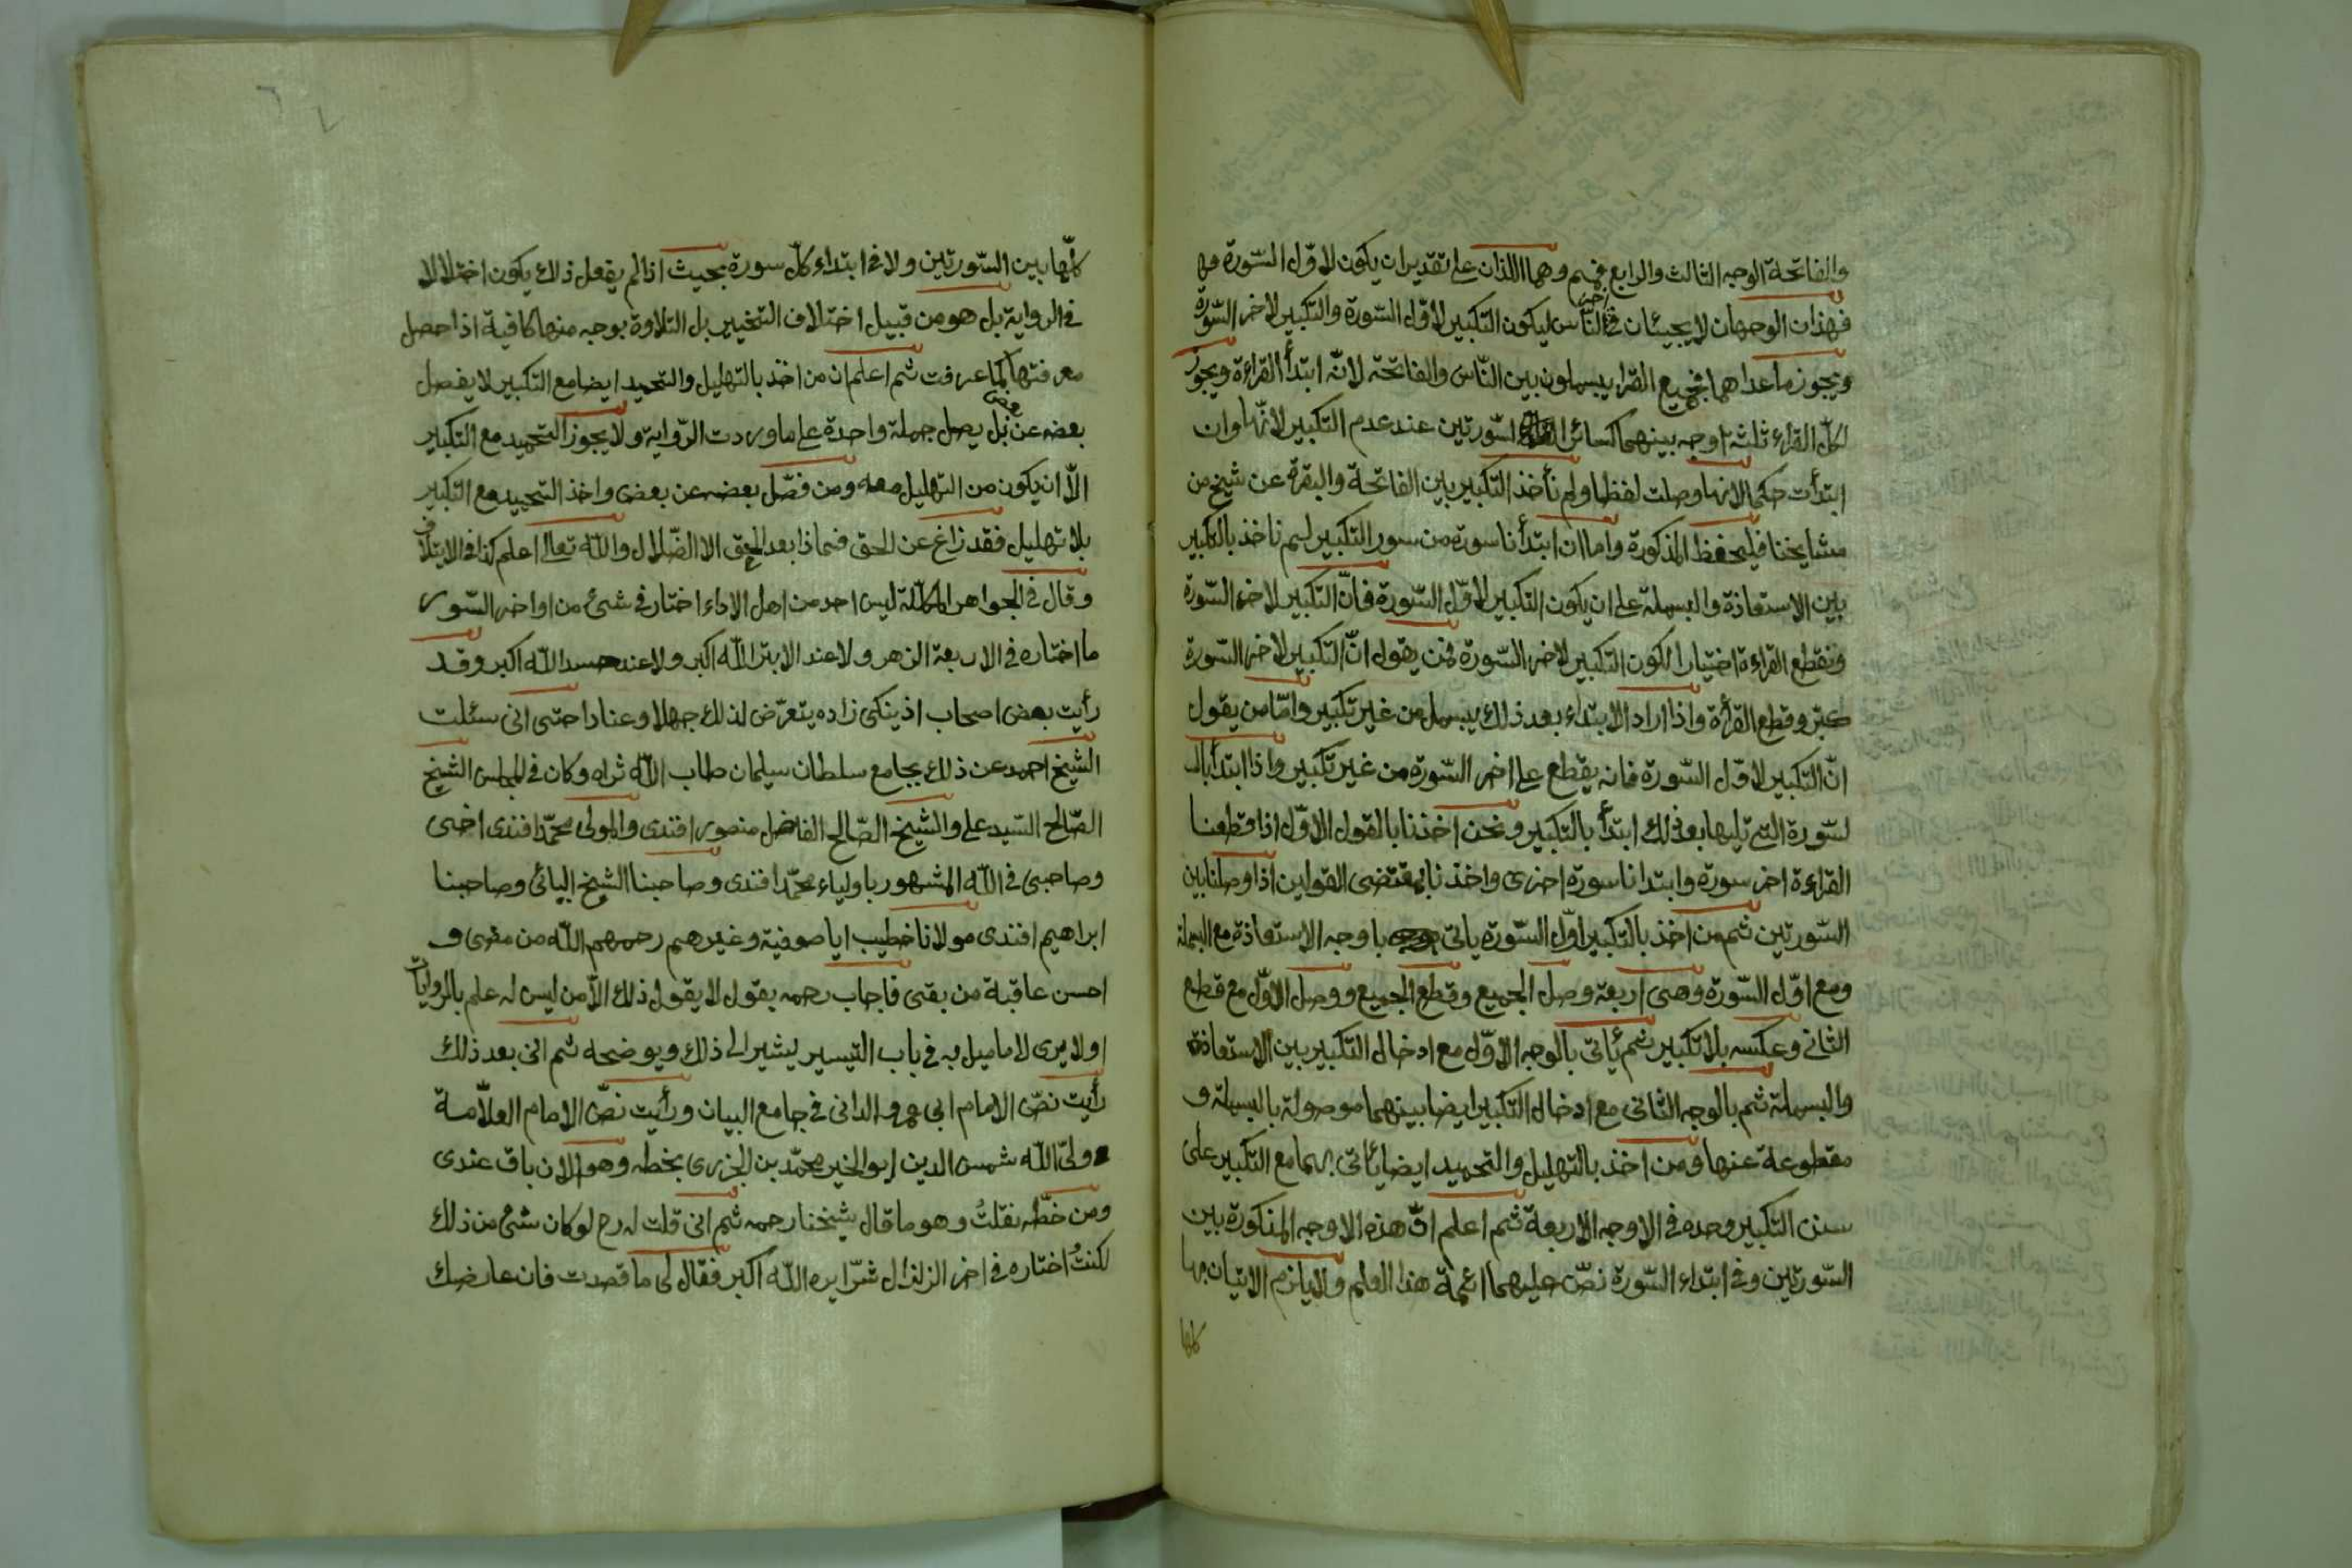 والفاتحة الوجه الثالث والرابع فهم وهما اللذان على تقدير ان يكون لاوّل السّورة فها
فهذان الوجهان لا يجيئان في اخر النّاس ليكون التكبير لاوّل السّورة والتكبير لاخر السّورة
ويجوز ما عداهما فجميع القرا يبسملون بين النّاس والفاتحة لانّه ابتدأ القراءة ويجوز
لكلّ القراء ثلثة اوجه بينهما كسائر السّورتين عند عدم التكبير لانّها وان
ابتدأت حكما لانها وصلت لفظا ولم نأخذ التكبير بين الفاتحة والبقرة عن شيخ من
مشايخنا فليحفظ المذكورة واما ان ابتدأنا سورة من سور التكبير لم نأخذ بالتكبير
بين الاستعاذة والبسملة على ان يكون التكبير لاوّل السّورة فانّ التكبير لاخر السّورة
ونقطع القراءة اختيارا لكون التكبير لاخر السّورة فمن يقول انّ التكبير لاخر السّورة
كبّر وقطع القرأة واذا اراد الابتداء بعد ذلك يبسمل من غير تكبير وامّا من يقول
انّ التكبير لاوّل السّورة فانه يقطع على اخر السّورة من غير تكبير واذا ابتدأ بالـ
لسّورة التي تليها بعد ذلك ابتدأ بالتكبير ونحن اخذنا بالقول الاوّل اذا قطعنا
القراءة اخر سورة وابتدانا سورة اخرى واخذنا بمقتضى القولين اذا وصلنا بين
السّورتين ثم من اخذ بالتكبير اوّل السّورة ياتى باوجه الاستعاذة مع البسملة
ومع اوّل السّورة وهى اربعة وصل الجميع وقطع الجميع ووصل الاوّل مع قطع
الثانى وعكسه بلا تكبير ثم يأتى بالوجه الاوّل مع ادخال التكبير بين الاستعاذة
والبسملة ثم بالوجه الثانى مع ادخال التكبير ايضا بينهما موصولة بالبسملة و
مقطوعة عنها ومن اخذ بالتهليل والتحميد ايضا يأتى بهما مع التكبير على
سنن التكبير وحده في الاوجه الاربعة ثم اعلم انّ هذه الاوجه المذكورة بين
السّورتين وفي ابتداء السّورة نصّ عليهما ائمة هذا العلم ولا يلزم الاتيان بها
كلها
كلّها بين السّورتين ولا في ابتداء كلّ سورة بحيث اذا لم يفعل ذلك يكون اختلالا
في الرواية بل هو من قبيل اختلاف التخيير بل التلاوة بوجه منها كافية اذا حصل
معرفتها كما عرفت ثم اعلم ان من اخذ بالتهليل والتحميد ايضا مع التكبير لا يفصل
بعضه عن بعض بل يصل جملة واحدة على ما وردت الرّواية ولا يجوز التحميد مع التكبير
الاّ ان يكون من التهليل معه ومن فصّل بعضه عن بعض واخذ التحميد مع التكبير
بلا تهليل فقد زاغ عن الحق فماذا بعد الحق الا الضّلال والله تعالى اعلم كذا في الايتلاف
وقال في الجواهر المكلّلة ليس احد من اهل الاداء اختار في شئ من اواخر السّور
ما اختاره في الاربعة الزهر ولا عند الابتر الله اكبر ولا عند حسد الله اكبر وقد
رأيت بعض اصحاب اذينكى زاده يتعرّض لذلك جهلا وعنادا حتى انى سئلت
الشيخ احمد عن ذلك بجامع سلطان سليمان طاب الله ثراه وكان في المجلس الشيخ
الصّالح السّيد على والشيخ الصّالح الفاضل منصور افندى والمولى محمّد افندى اخى
وصاحبى في الله المشهور باولياء محمّد افندى وصاحبنا الشيخ اليائى وصاحبنا
ابراهيم افندى مولانا خطيب ايا صوفية وغيرهم رحمهم الله من مضى و
احسن عاقبة من بقى فاجاب رحمه بقول لا يقول ذلك الاّ من ليس له علم بالروايات
اولا يرى لا ما ميل به في باب التيسير ليشير الى ذلك ويوضحه ثم انى بعد ذلك
رأيت نصّ الامام ابى عمرو الدانى في جامع البيان ورأيت نصّ الامام العلاّمة
ولىّ الله شمس الدين ابو الخير محمّد بن الجزرى بخطه وهو الان باق عندى
ومن خطّه نقلتُ وهو ما قال شيخنا رحمه ثم انى قلت له رح لو كان شئ من ذلك
لكنتُ اختاره في اخر الزلزال شرّا يره الله اكبر فقال لى ما قصدت فان عارضك